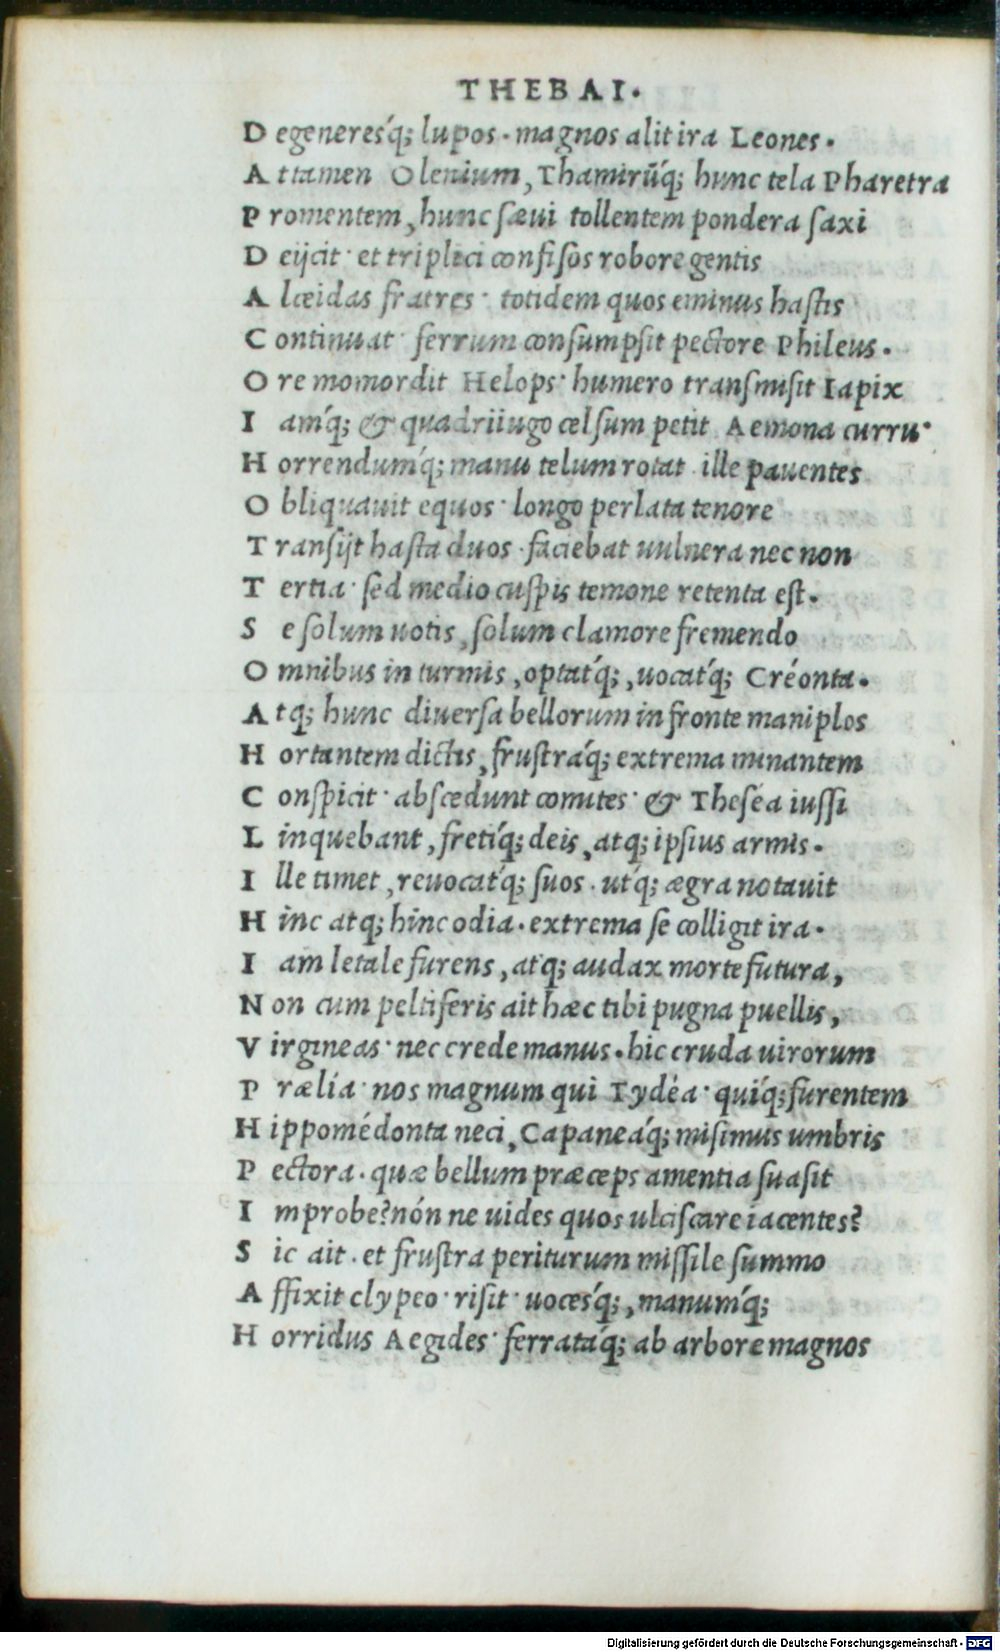 THEBAI.
D egeneresq́; lupos. magnos alit ira Leones.
A ttamen Olenium, Thamirūq́; hunc tela Pharetra
P romentem, hunc sæui tollentem pondera saxi
D eijcit· et triplici confisos robore gentis
A lceidas fratres· totidem quos eminus hastis
C ontinuat· ferrum consumpsit pectore Phileus.
O re momordit Helops· humero transmisit Iapix
I amq́; & quadriiugo celsum petit Aemona curru·
H orrendumq́; manu telum rotat· ille pauentes
O bliquauit equos· longo perlata tenore
T ransijt hasta duos· faciebat uulnera nec non
T ertia· sed medio cuspis temone retenta est.
S e solum uotis, solum clamore fremendo
O mnibus in turmis, optatq́;, uocatq́; Créonta.
A tq; hunc diuersa bellorum in fronte maniplos
H ortantem dictis, frustráq́; extrema minantem
C onspicit· abscedunt comites· & Thesea iussi
L inquebant, fretiq́; deis, atq; ipsius armis.
I lle timet, reuocatq́; suos. utq́; ægra notauit
H inc atq; hinc odia. extrema se colligit ira.
I am letale furens, atq; audax morte futura,
N on cum peltiferis ait hæc tibi pugna puellis,
V irgineas· nec crede manus. hic cruda uirorum
P rælia· nos magnum qui Tydéa· quiq́; furentem
H ippomédonta neci, Capaneáq́; misimus umbris
P ectora. quæ bellum præceps amentia suasit
I mprobe? nón ne uides quos ulciscare iacentes?
S ic ait. et frustra periturum missile summo
A ffixit clypeo· risit· uocesq́;, manumq́;
H orridus Aegides· ferratáq́; ab arbore magnos
Digitalisierung gefördert durch die Deutsche Forschungsgemeinschaft - DFG